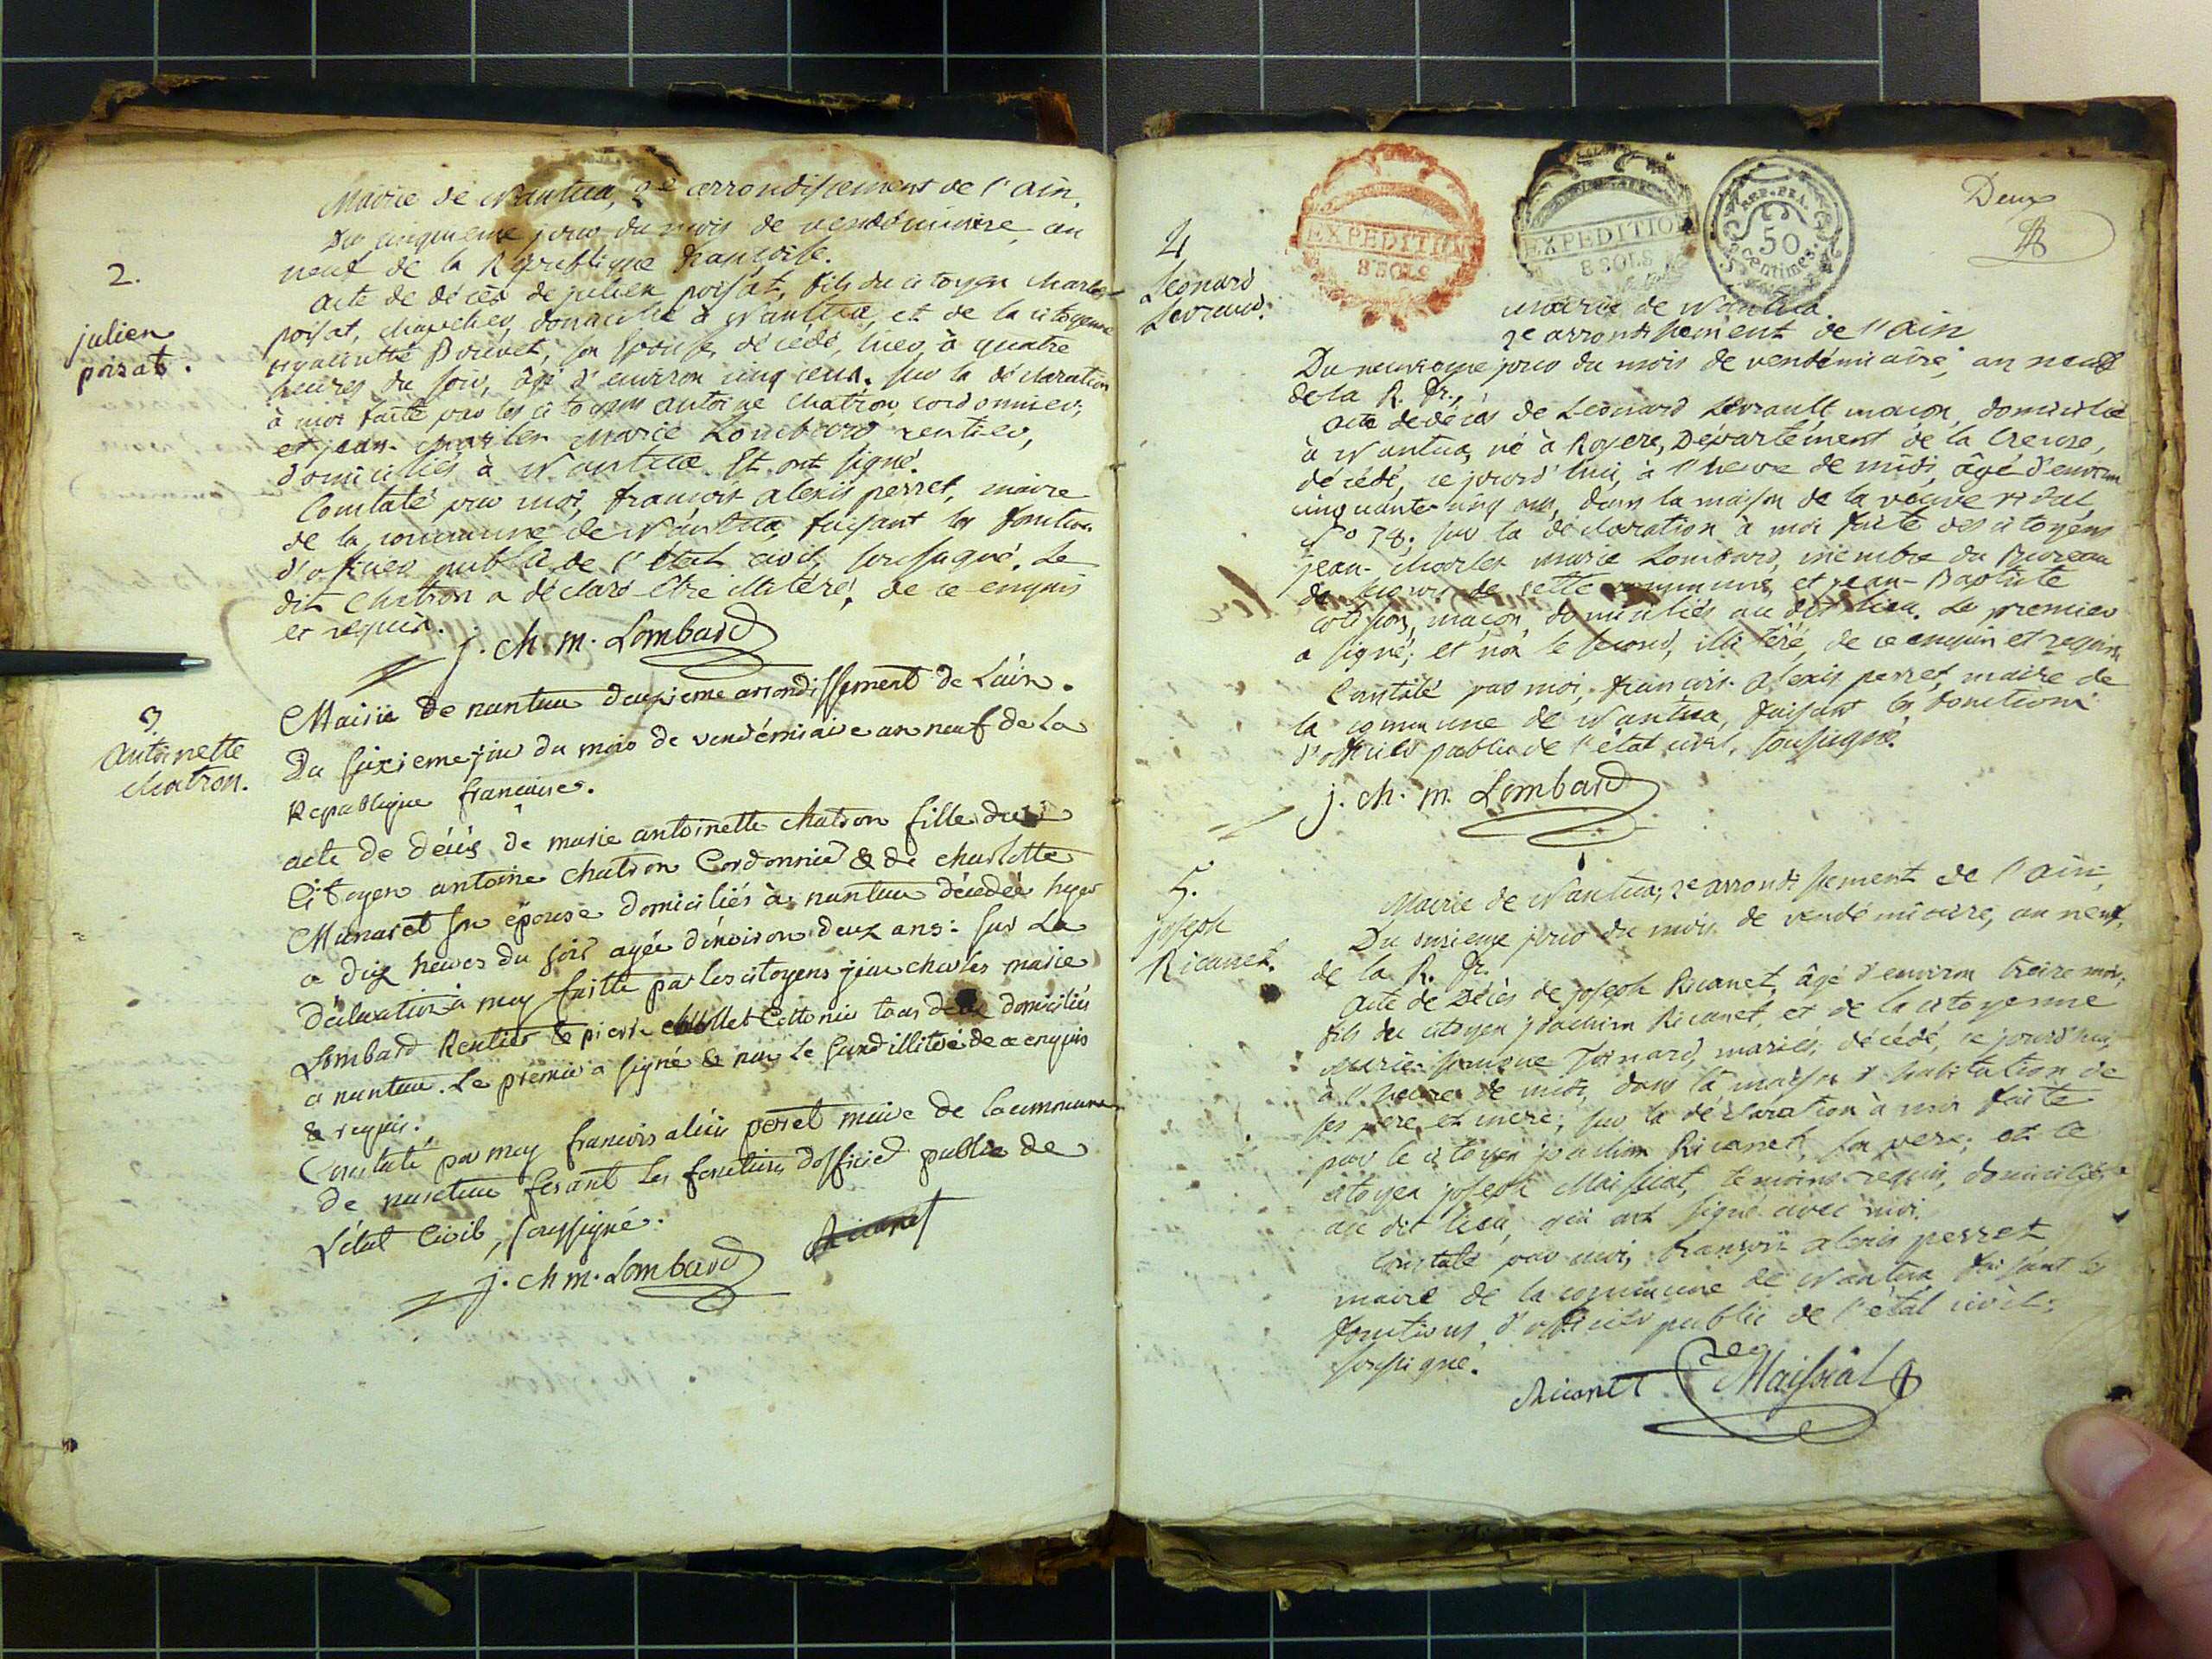 2.
julien
poisat.
Mairie de Nantua, 2e arrondissement de l'ain,
Du cinquieme jour du mois de vendémiaire, an
neuf de la République françoise.
acte de décès de julien poisat, fils du citoyen charles
poisat, domicilié à Nantua, et de la citoyenne
Bouvet, son épouse, décédé, hier, à quatre
heures du soir, âgé d'environ cinq ans. sur la déclaration
à moi faite par les citoyens antoine chatron, cordonnier,
et jean-charles marie Lombard rentier,
domiciliés à Nantua. Et ont signé.
Constaté par moi, françois alexis perret, maire
de la commune de Nantua, faisant les fonctions
d'officier public de l'état civil, soussigné. Le
dit Chatron a déclaré être illitéré, de ce enquis
et requis.
j. ch m. Lombard
3
antoinette
chatron.
Mairie de nantua deuxieme arrondissement de Lain.
Du sixieme jour du mois de vendémiaire an neuf de la
Republique francaise.
acte de décès de marie antoinette chatron fille du
Citoyen antoine chatron Cordonnier & de charlotte
Munaret son épouse domiciliés à nantua décedée hyer
a dix heures du soir agée d'environ deux ans: sur La
déclaration à moy faitte par les citoyens jean charles marie
Lombard Rentier & pierre tous deux domiciliés
a nantua. Le premier a signé & non le second illitéré de ce enquis
& requis.
Constaté par moy francois alexis perret maire de la commune
de nantua fesant les fonctions d'officier public de
L'état Civil, soussigné.
j. ch m. Lombard Ricanet
Deux
EXPEDITION
8 SOLS
EXPEDITION
8 SOLS
REP. FRA.
50
centimes.
4
Léonard
Levraud.
mairie de Nantua.
2e arrondissement de l'ain
Du neuvieme jour du mois de vendémiaire, an neuf
de la R. fr.,
acte de décès de Leonard Levrault, macon, domicilié
à Nantua, né à Royere, Département de la Creuse,
décédé, ce jourd'hui, à l'heure de midi, âgé d'environ
cinquante-cinq ans, dans la maison de la veuve
No 78; sur la déclaration à moi faite des citoyens
jean-charles marie Lombard, membre du Bureau
de secours de cette commune, et jean-Baptiste
maçon, domiciliés au dit lieu. Le premier
a signé; et non le second, illitéré, de ce enquis et requis.
Constaté par moi, françois-alexis perret, maire de
la commune de Nantua, faisant les fonctions
d'officier public de l'état civil, soussigné.
j. ch. m. Lombard
5.
joseph
Ricanet.
Mairie de Nantua, 2e arrondissement de l'ain,
Du onzieme jour du mois de vendémiaire, an neuf,
de la R. fr.
acte de Décès de joseph Ricanet, âgé d'environ treize mois,
fils du citoyen joachim Ricanet, et de la citoyenne
marie mariés, décédé, ce jourd'hui,
à l'heure de midi, dans la maison d'habitation de
ses pere et mere; sur la déclaration à moi faite
par le citoyen joachim Ricanet, son pere; et le
citoyen joseph Maissiat, témoins requis, domiciliés
au dit lieu, qui ont signé avec moi.
Constaté par moi, françois alexis perret
maire de la commune de Nantua, faisant les
fonctions d'officier public de l'état civil,
soussigné.
Ricanet Maissiat